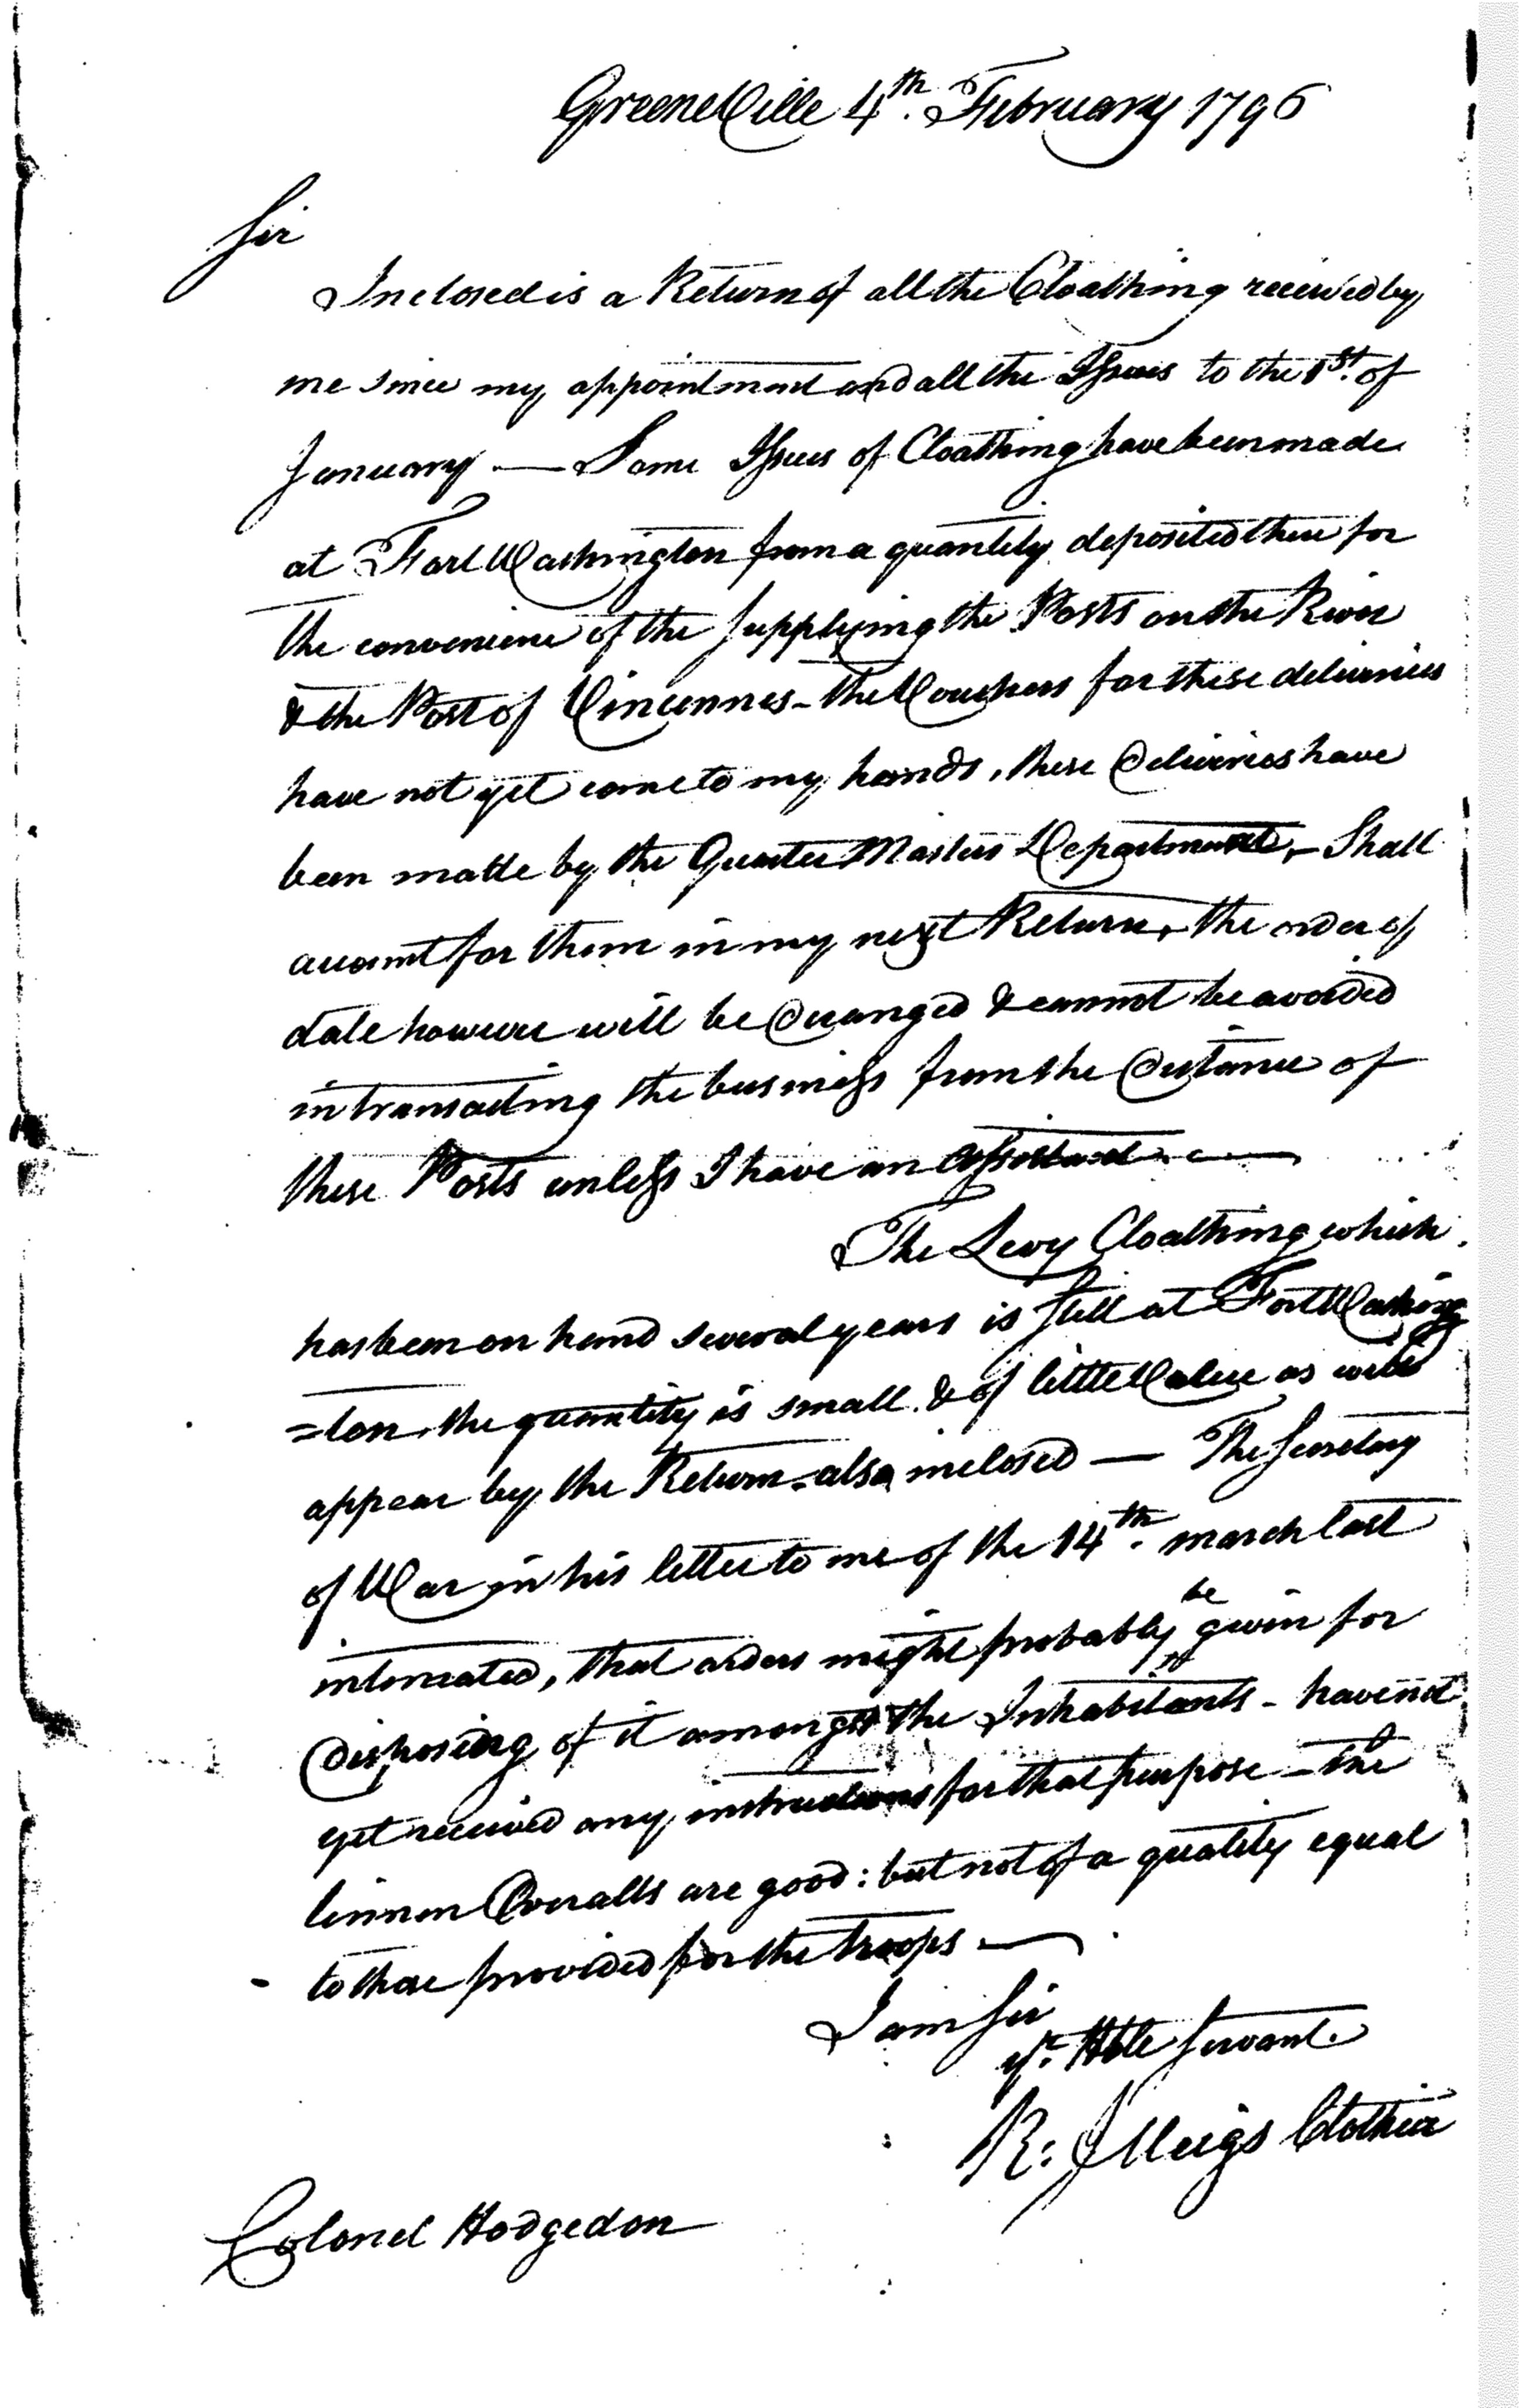 GreeneVille 4th. February 1796
Sir
Inclosed is a Return of all the Cloathing received by
me since my appointment and all the Issues to the 1st. of
January — Some Issues of Cloathing have been made
at Fort Washington from a quantity deposited there for
the convenience of the supplying the Posts on the River
& the Post of Vincennes - the Vouchers for these deliveries
have not yet come to my hands, these Deliveries have
been made by the Quarter Masters Department, - Shall
account for them in my next Return, the order of
date however will be Deranged & cannot be avoided
in transacting the business from the Distance of
these Posts unless I have an assistant. —
The Levy Cloathing which
has been on hand several years is still at Fort Washing
=ton, the quantity is small & of little Value as will
appear by the Return also inclosed — The Secretary
of War in his letter to me of the 14th. march last
intimated, that orders might probably be given for
Disposing of it amongst the Inhabitants - have not
yet received any instructions for that purpose - the
linnen Overalls are good: but not of a quality equal
to those provided for the troops —
I am Sir
yr. Hble Servant.
R: J Meigs Clothier
Colonel Hodgedon